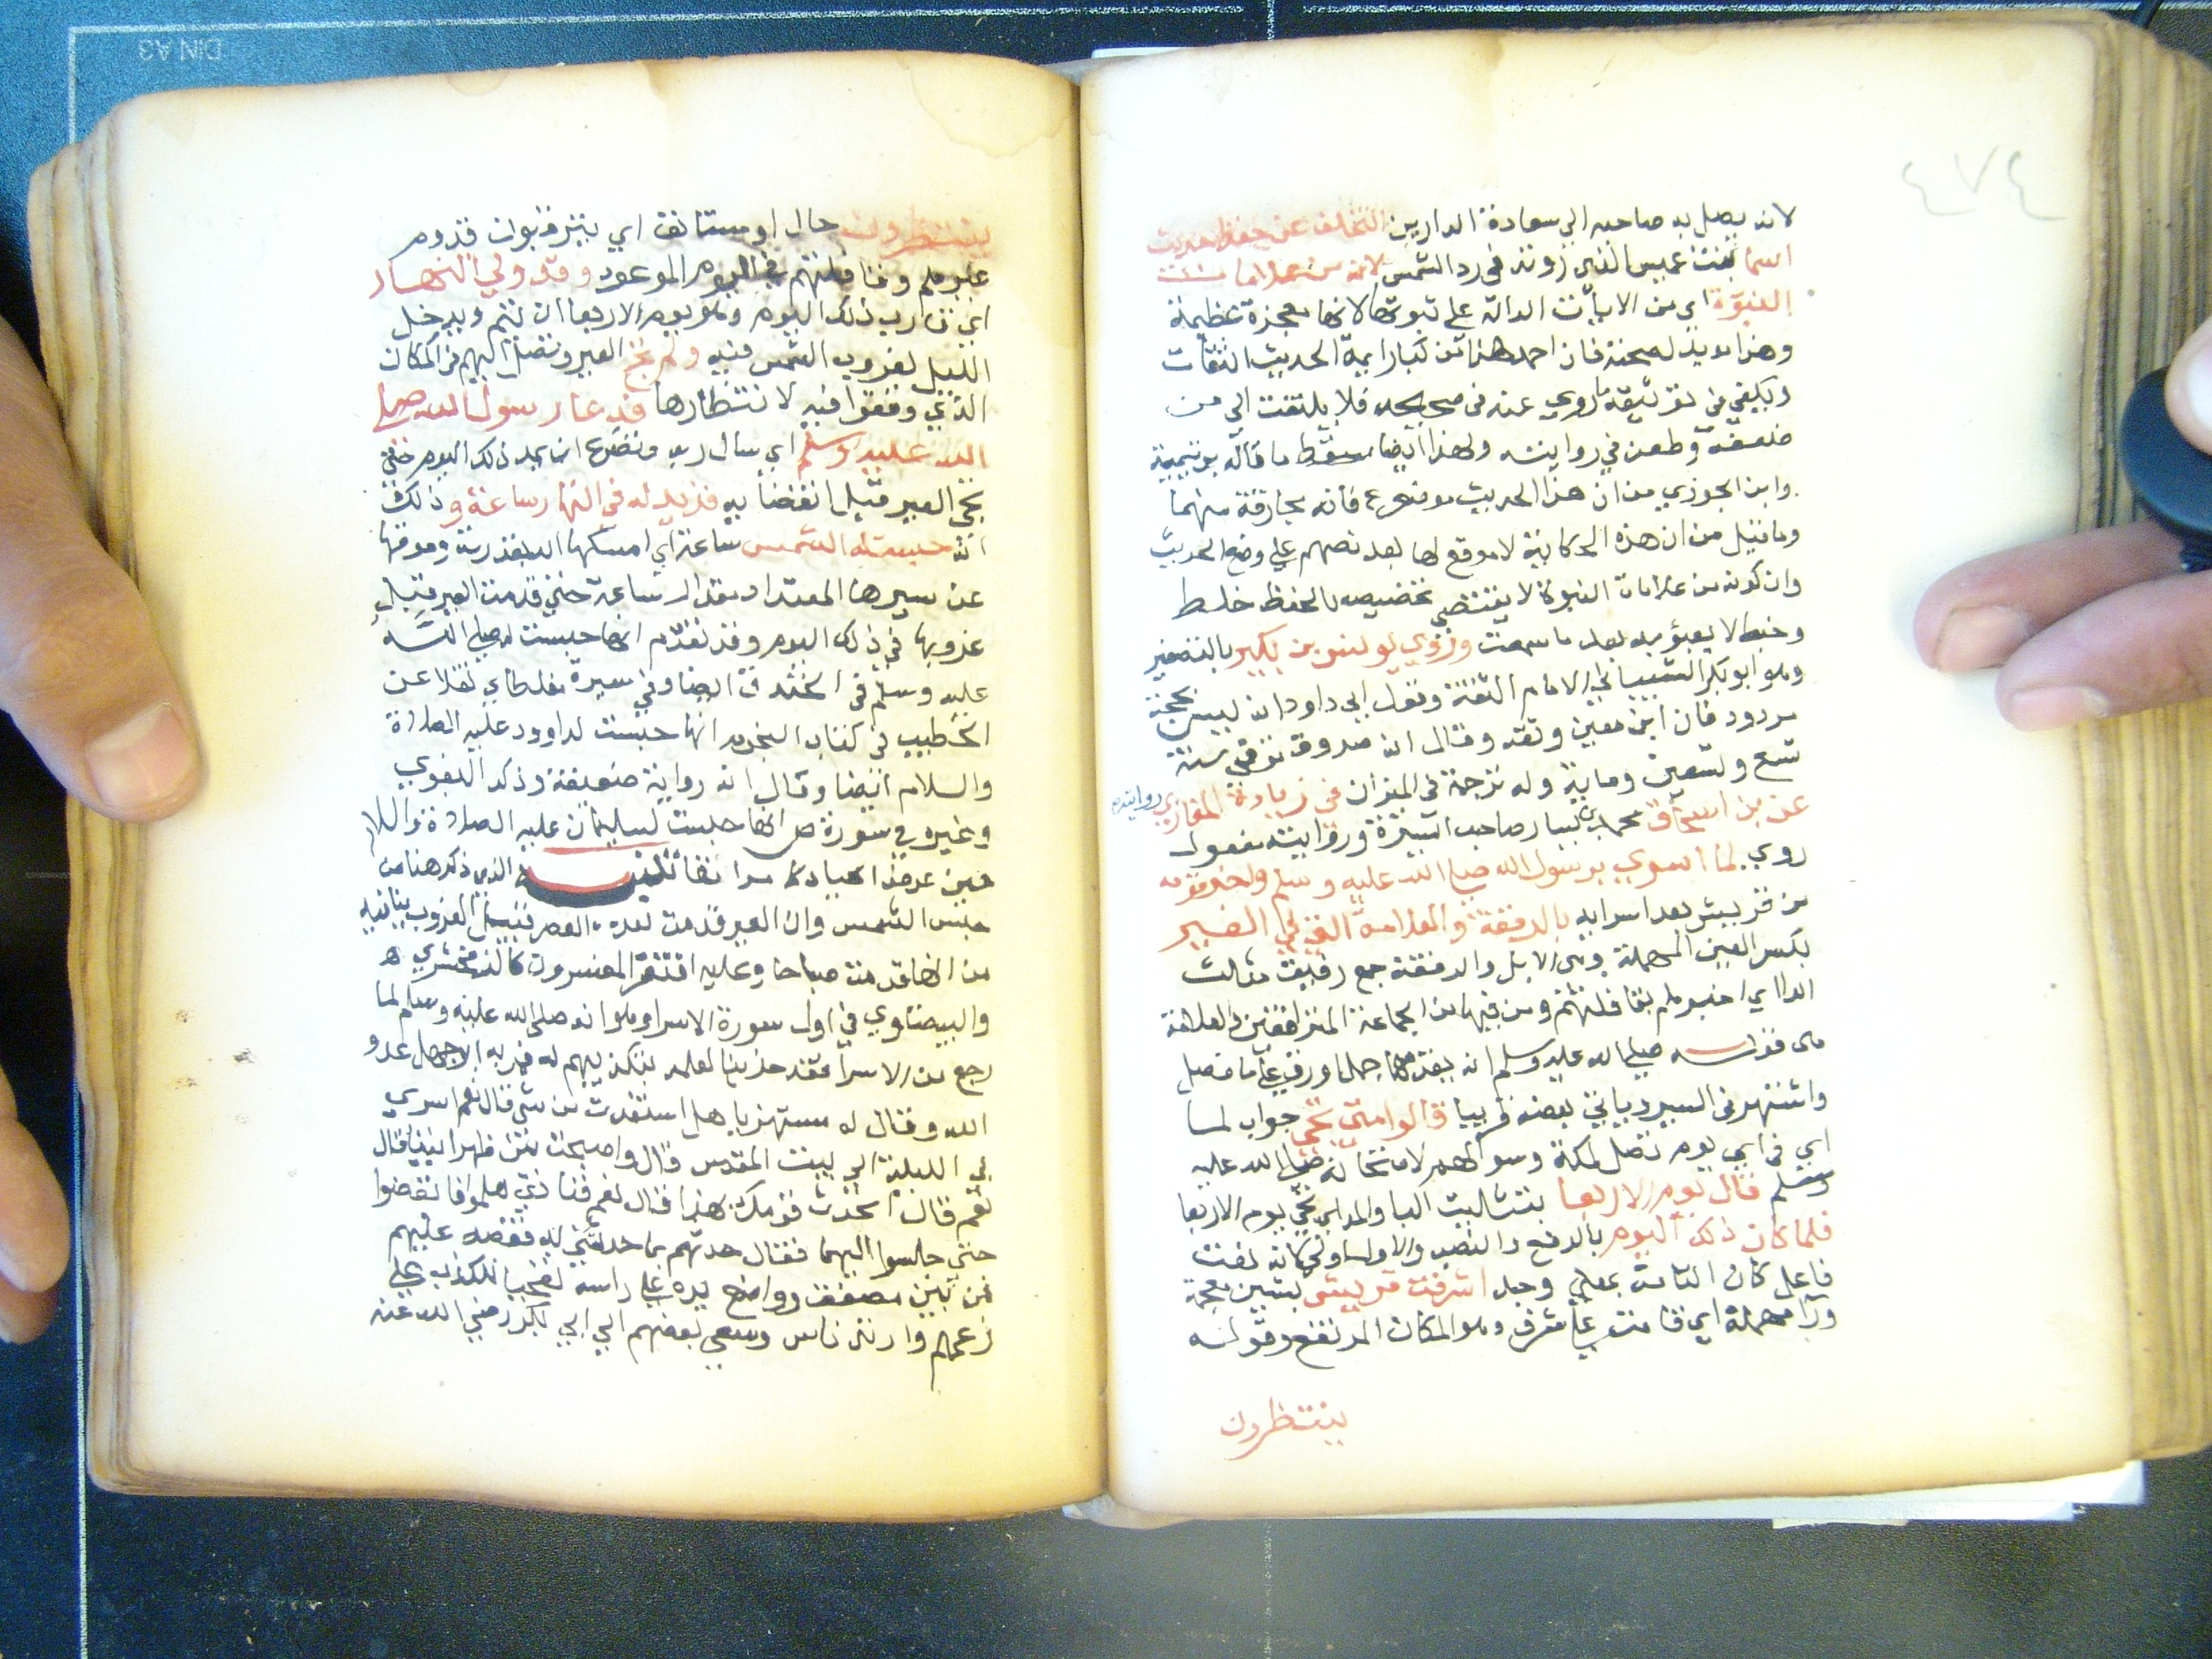 ٤٧٤
لانه يصل به صاحبه الى سعادة الدارين التخلف عن حفظ حديث
اسما بنت عميس الذى روته فى رد الشمس لانه من علامات
النبوة اى من الايات الدالة على ثبوتها لانها معجزة عظيمة
وهذا مويد لصحته فان احمد هذا من كبار ايمة الحديث الثقات
ويكفي في توثيقه ما روي عنه فى صحيحه فلا يلتفت الى من
ضعفه وطعن في روايته ولهذا ايضا سقط ما قاله بن تيمية
وابن الجوزي من ان هذا الحديث موضوع فانه مجازفة منهما
وما قيل من ان هذه الحكاية لا موقع لها بعد نصهم على وضع الحديث
وان كونه من علامات النبوة لا يقتضي تخصيصه بالحفظ خلط
وخبط لا يعبؤ به بعد ما سمعت وروي يونس بن بكير بالتصغير
وهو ابو بكر الشيباني الامام الثقة وقول ابي داود انه ليس بحجة
مردود فان ابن معين وثقه وقال انه صدوق توفي سنة
تسع وتسعين وماية وله ترجمة في الميزان في زيادة المغازي روايته
عن بن اسحاق محمد بن يسار صاحب السيرة وروايته مفعول
روي لما اسري برسول الله صلى الله عليه وسلم واخبر قومه
من قريش بعد اسرايه بالرفقة والعلامة التي في العير
بكسر العين المهملة وهى الابل والرفقة جمع رفيق مثلث
الرا اي اخبرهم بقافلتهم ومن فيها من الجماعة المترافقين والعلامة
هى قوله صلى الله عليه وسلم انه يقدمها جمل اورق على ما فصل
واشتهر فى السير وياتي بعضه قريبا قالوا متى تجي جواب لما
اي في اي يوم تصل لمكة وسوالهم لامتحانه صلى الله عليه
وسلم قال يوم الاربعا بتثليث البا والمد اي تجي يوم الاربعا
فلما كان ذلك اليوم بالرفع والنصب والاول اولى لانه نعت
فاعل كان التامة بمعنى وجد اشرفت قريش بشين معجمة
ورا مهملة اي قامت على شرف وهو المكان المرتفع وقوله
ينتظرون
ينتظرون حال او مستانف اي يترقبون قدوم
عيرهم وقافلتهم في اليوم الموعود وقد ولي النهار
اي قارب ذلك اليوم وهو يوم الاربعا ان يتم ويدخل
الليل لغروب الشمس فيه ولم تجي العير وتصل اليهم فى المكان
الذي وقفوا فيه لانتظارها فدعا رسول الله صلى
الله عليه وسلم اي سال ربه وتضرع ان يمد ذلك اليوم حتى
تجي العير قبل انقضايه فزيد له في النهار ساعة وذلك
انه حبست له الشمس ساعة اي امسكها الله بقدرته وعوقها
عن سيرها المعتاد مقدار ساعة حتى قدمت العير قبل
غروبها في ذلك اليوم وقد تقدم انها حبست له صلى الله
عليه وسلم فى الخندق ايضا وفي سيرة مغلطاي نقلا عن
الخطيب فى كتاب النجوم انها حبست لداوود عليه الصلاة
والسلام ايضا وقال انه رواية ضعيفة وذكر البغوي
وغيره في سورة ص انها حبست لسليمان عليه الصلاة والسلام
حين عرض الجياد كما مر انفا تنبيه الذي ذكر هنا من
حبس الشمس وان العير قدمت بعده العصر قبيل الغروب ينافيه
من انها قدمت صباحا وعليه اقتصر المفسرون كالزمخشري
والبيضاوي في اول سورة الاسرا وهو انه صلى الله عليه وسلم لما
رجع من الاسرا قعد حزينا لعلمه بتكذيبهم له فمر به ابو جهل عدو
الله وقال له مستهزيا هل استفدت من شي قال نعم اسري
بي الليلة الى بيت المقدس قال واصبحت بين ظهرانينا قال
نعم قال اتحدث قومك بهذا قال نعم فنادى هلموا فانفضوا
حتى جلسوا اليهما فقال حدثهم بما حدثتني به فقصه عليهم
فمن بين مصفق وواضع يده على راسه تعجبا للكذب على
زعمهم وارتد ناس وسعى بعضهم الى ابي بكر رضي الله عنه